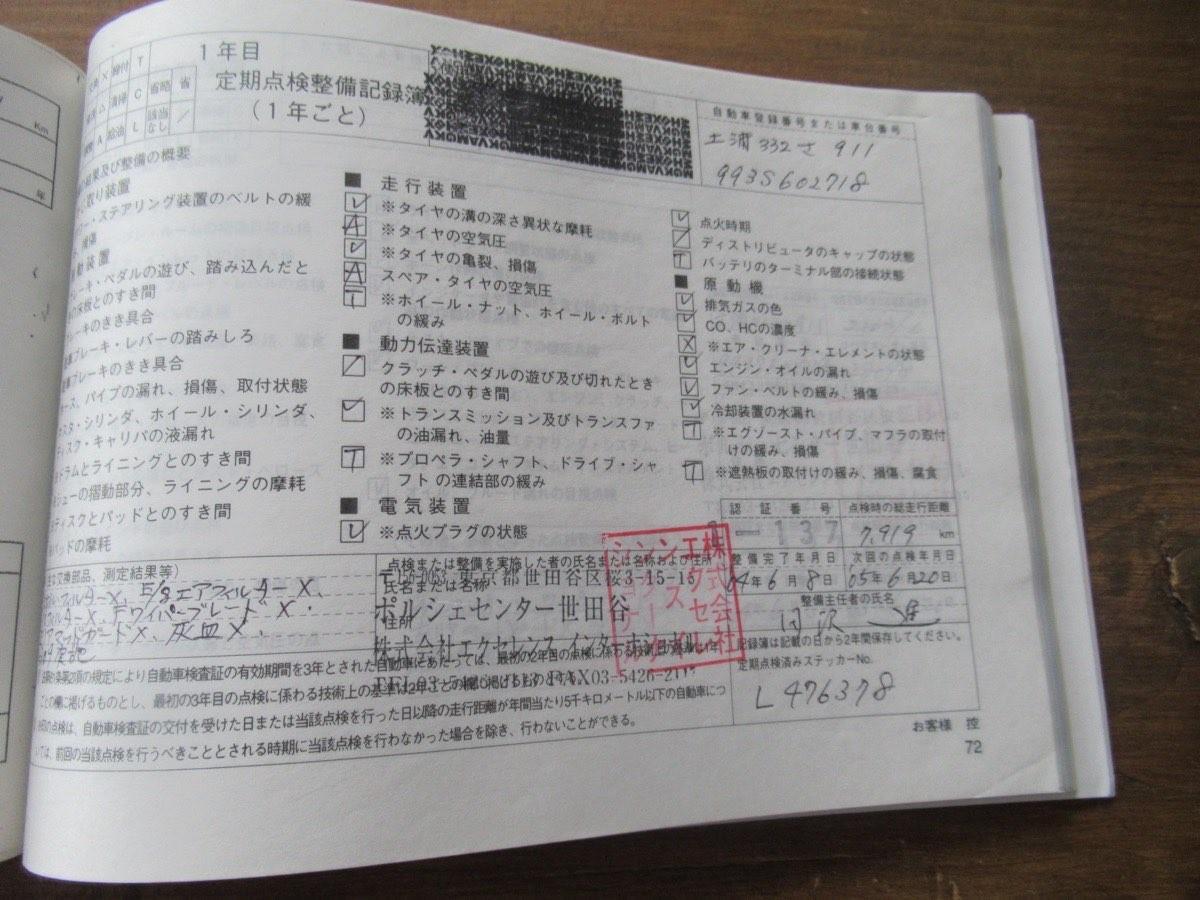 1年目
定期点検整備記録簿
(1年ごと)
締付 T
清掃 C 省略 省
A 給油 L 該当なし /
自動車登録番号または車台番号
土浦 332 さ 911
993S602718
結果及び整備の概要
取り装置
ー・ステアリング装置のベルトの緩
損傷
装置
ーキ・ペダルの遊び、踏み込んだと
の床板とのすき間
ブレーキのきき具合
ブレーキ・レバーの踏みしろ
ブレーキのきき具合
ース、パイプの漏れ、損傷、取付状態
スタ・シリンダ、ホイール・シリンダ、
ディスク・キャリパの液漏れ
ドラムとライニングとのすき間
シューの摺動部分、ライニングの摩耗
ディスクとパッドとのすき間
パッドの摩耗
■ 走行装置
レ ※タイヤの溝の深さ異状な摩耗
A ※タイヤの空気圧
レ ※タイヤの亀裂、損傷
A スペア・タイヤの空気圧
T ※ホイール・ナット、ホイール・ボルト
の緩み
■ 動力伝達装置
/ クラッチ・ペダルの遊び及び切れたとき
の床板とのすき間
レ ※トランスミッション及びトランスファ
の油漏れ、油量
T ※プロペラ・シャフト、ドライブ・シャ
フトの連結部の緩み
■ 電気装置
レ ※点火プラグの状態
レ 点火時期
/ ディストリビュータのキャップの状態
T バッテリのターミナル部の接続状態
■ 原動機
レ 排気ガスの色
レ CO、HCの濃度
X ※エア・クリーナ・エレメントの状態
レ エンジン・オイルの漏れ
レ ファン・ベルトの緩み、損傷
レ 冷却装置の水漏れ
T ※エグゾースト・パイプ、マフラの取付
けの緩み、損傷
T ※遮熱板の取付けの緩み、損傷、腐食
認証番号 点検時の総走行距離
137 7,919 km
整備完了年月日 次回の点検年月日
04年 6月 8日 05年 6月 20日
整備主任者の氏名
記録簿は記載の日から2年間保存してください。
定期点検済みステッカーNo.
L 476378
交換部品、測定結果等)
フィルターX、E/gエアフィルターX、
X、Fワイパーブレード X・
点検又は整備を実施した者の氏名または名称および住所
東京都世田谷区桜3-15-15
氏名または名称
ポルシェセンター世田谷
住所
株式会社エクセレンス インターナショナル
株式会社
エクセレンス
項の規定により自動車検査証の有効期間を3年とされた自動車にあたっては、最初の2年目の点検に係わる技術
の欄に掲げるものとし、最初の3年目の点検に係わる技術上の基準は2年ごとの欄に掲げるものとする。
の点検は、自動車検査証の交付を受けた日または当該点検を行った日以降の走行距離が年間当たり5千キロメートル以下の自動車につ
いては、前回の当該点検を行うべきこととされる時期に当該点検を行わなかった場合を除き、行わないことができる。
お客様 控
72